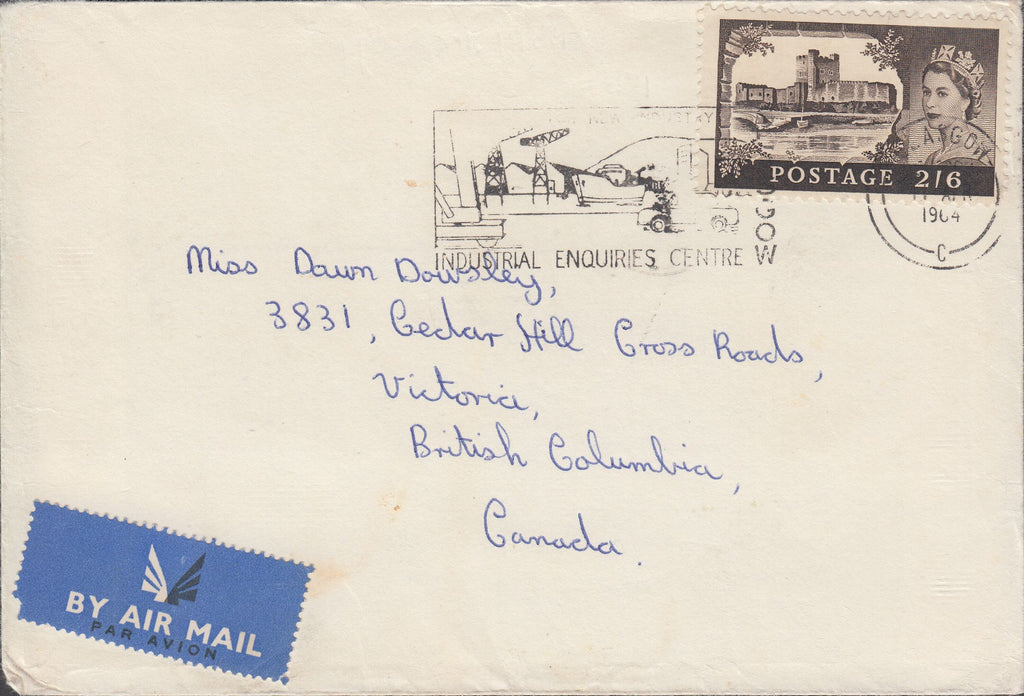 POSTAGE 2/6
NEW INDUSTRY
INDUSTRIAL ENQUIRIES CENTRE
1964
C
Miss Dawn Dowsley,
3831, Cedar Hill Cross Roads,
Victoria,
British Columbia,
Canada.
BY AIR MAIL
PAR AVION